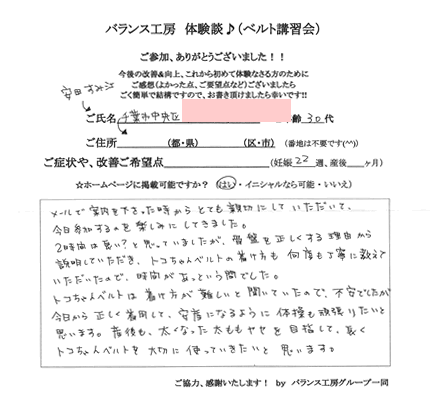 バランス工房 体験談♪(ベルト講習会)
ご参加、ありがとうございました!!
今後の改善&向上、これから初めて体験なさる方のために
ご感想(よかった点、ご要望点など)ございましたら
ごく簡単で結構ですので、お書き頂けましたら幸いです!!
ご氏名 千葉市中央区 齢 30 代
ご住所 (都・県) (区・市) (番地は不要です(^^))
ご症状や、改善ご希望点 (妊娠 22 週、産後 ヶ月)
☆ホームページに掲載可能ですか? (はい・イニシャルなら可能・いいえ)
メールで案内を下さった時からとても親切にしていただいて、
今日参加するのを楽しみにしてきました。
2時間は長い?と思っていましたが、骨盤を正しくする理由から
説明していただき、トコちゃんベルトの着け方も何度も丁寧に教えて
いただいたので、時間があっという間でした。
トコちゃんベルトは着け方が難しいと聞いていたので、不安でしたが
今日から正しく着用して、安産になるように体操も頑張りたいと
思います。産後も、太くなった太ももヤセを目指して、長く
トコちゃんベルトを大切に使っていきたいと思います。
ご協力、感謝いたします! by バランス工房グループ一同